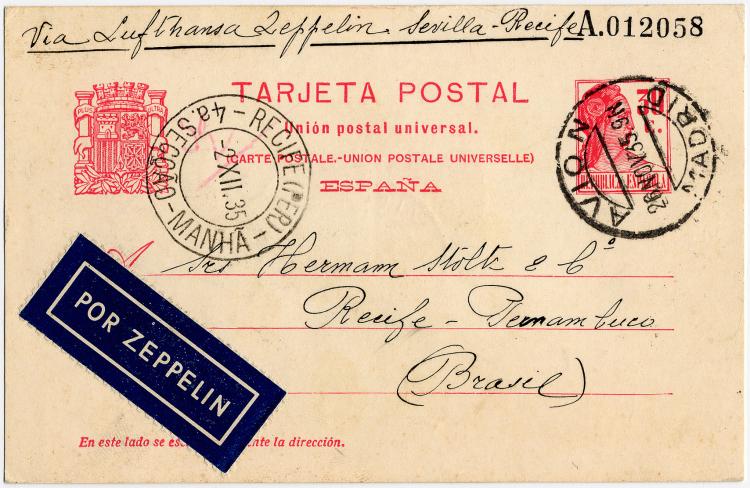 Via Lufthansa Zeppelin. Sevilla-Recife
A.012058
TARJETA POSTAL
Unión postal universal.
(CARTE POSTALE.-UNION POSTALE UNIVERSELLE)
ESPAÑA
PLUS ULTRA
REPUBLICA ESPAÑOLA
4a. SECÇÃO - RECIFE (PER) - MANHÃ -
-2XII.35
AVION MADRID
26NOV35.9N
A Srs Hermann Stoltz & Cº
Recife - Pernambuco
(Brasil)
POR ZEPPELIN
En este lado se es ente la dirección.